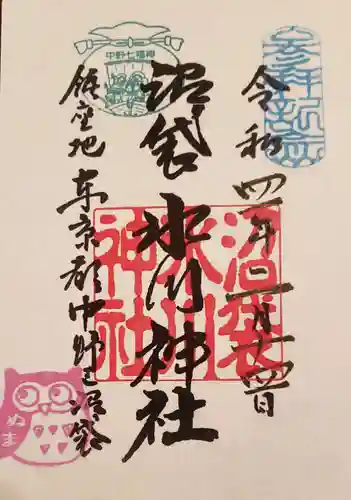 参拝記念
令和四年二月十四日
中野七福神
沼袋氷川神社
沼袋
氷川
神社
鎮座地 東京都中野区沼袋
ぬま